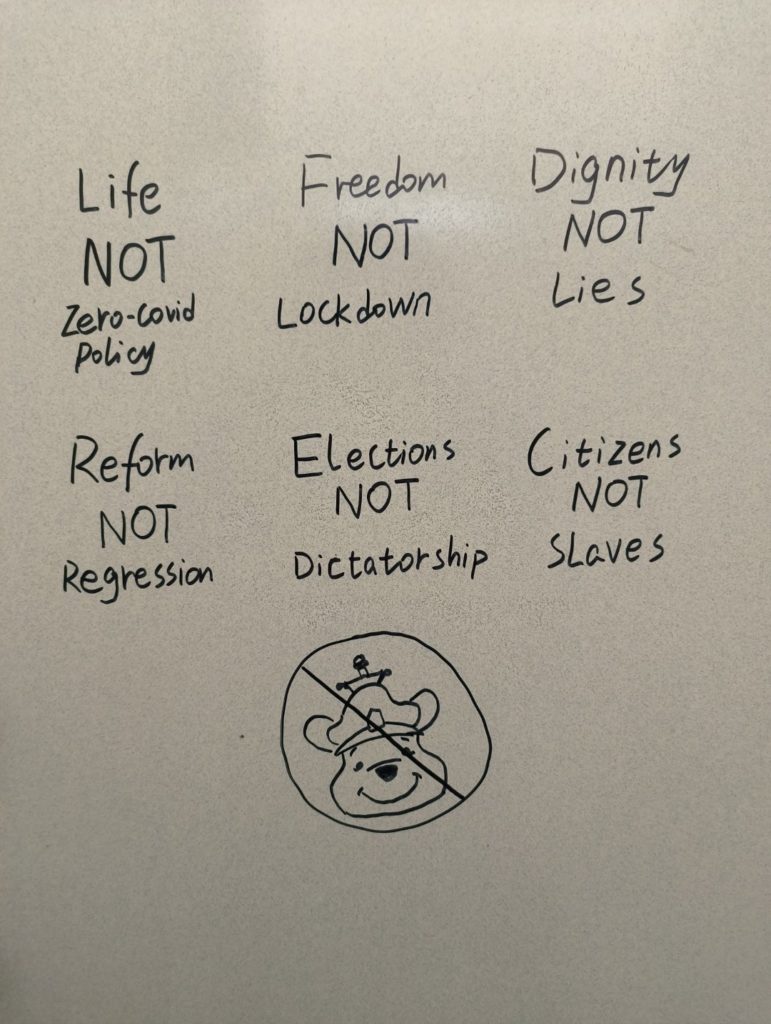 Life
NOT
Zero-covid
policy
Freedom
NOT
Lockdown
Dignity
NOT
Lies
Reform
NOT
Regression
Elections
NOT
Dictatorship
Citizens
NOT
Slaves